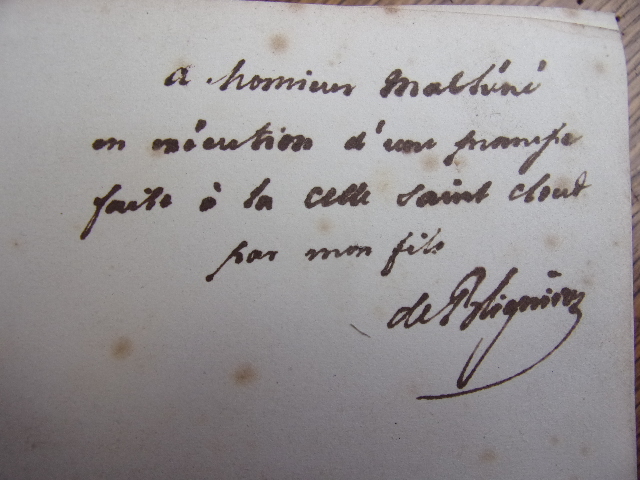 a Monsieur Mathéré
en exécution d'une promesse
faite à la Celle Saint Cloud
par mon fils
de Blignières